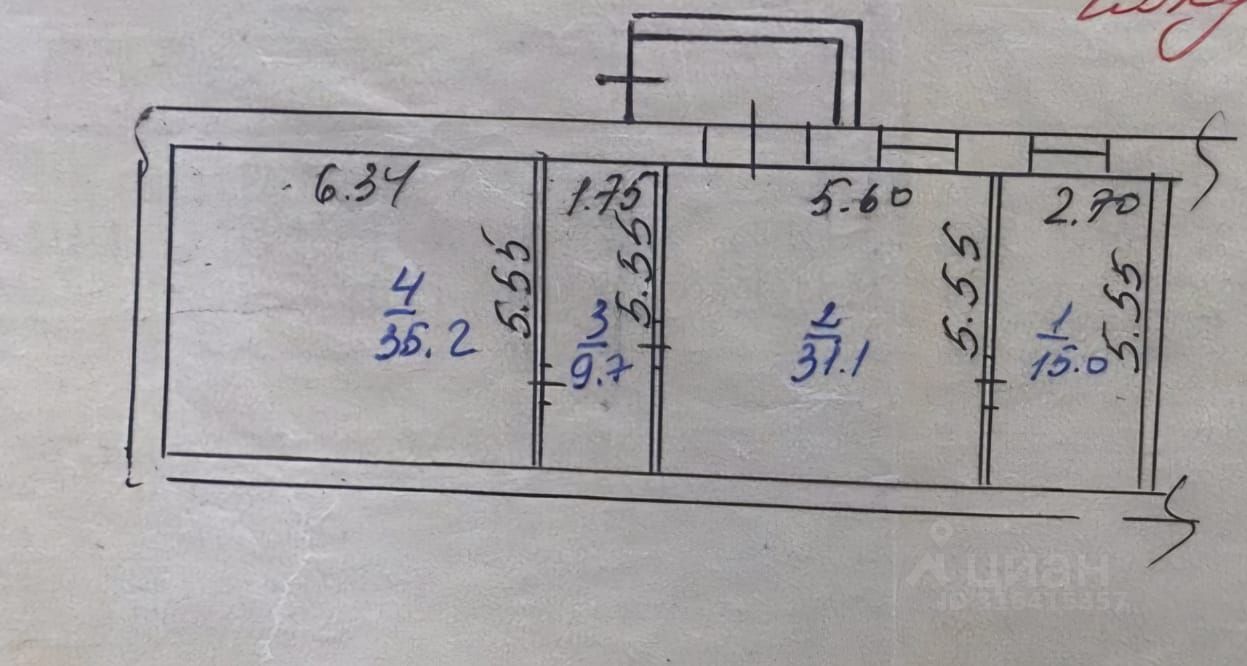 6.34
1.75
5.60
2.70
5.55
5.55
5.55
5.55
4
35.2
3
9.7
2
31.1
1
15.0
циан